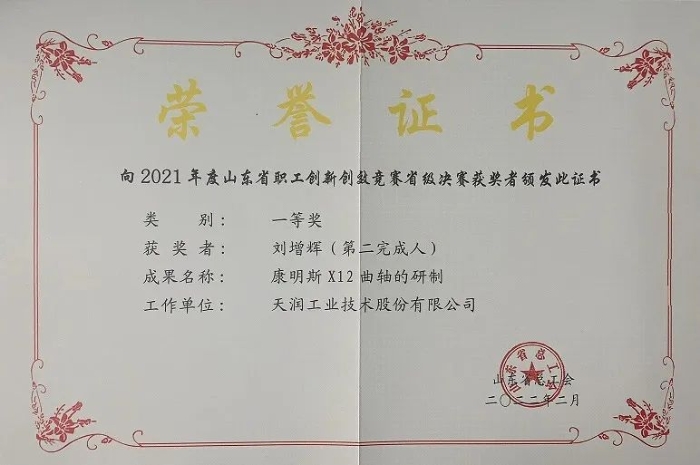 荣誉证书
向2021年度山东省职工创新创效竞赛省级决赛获奖者颁发此证书
类别： 一等奖
获奖者： 刘增辉（第二完成人）
成果名称： 康明斯X12曲轴的研制
工作单位： 天润工业技术股份有限公司
山东省总工会
山东省总工会
二〇二二年二月